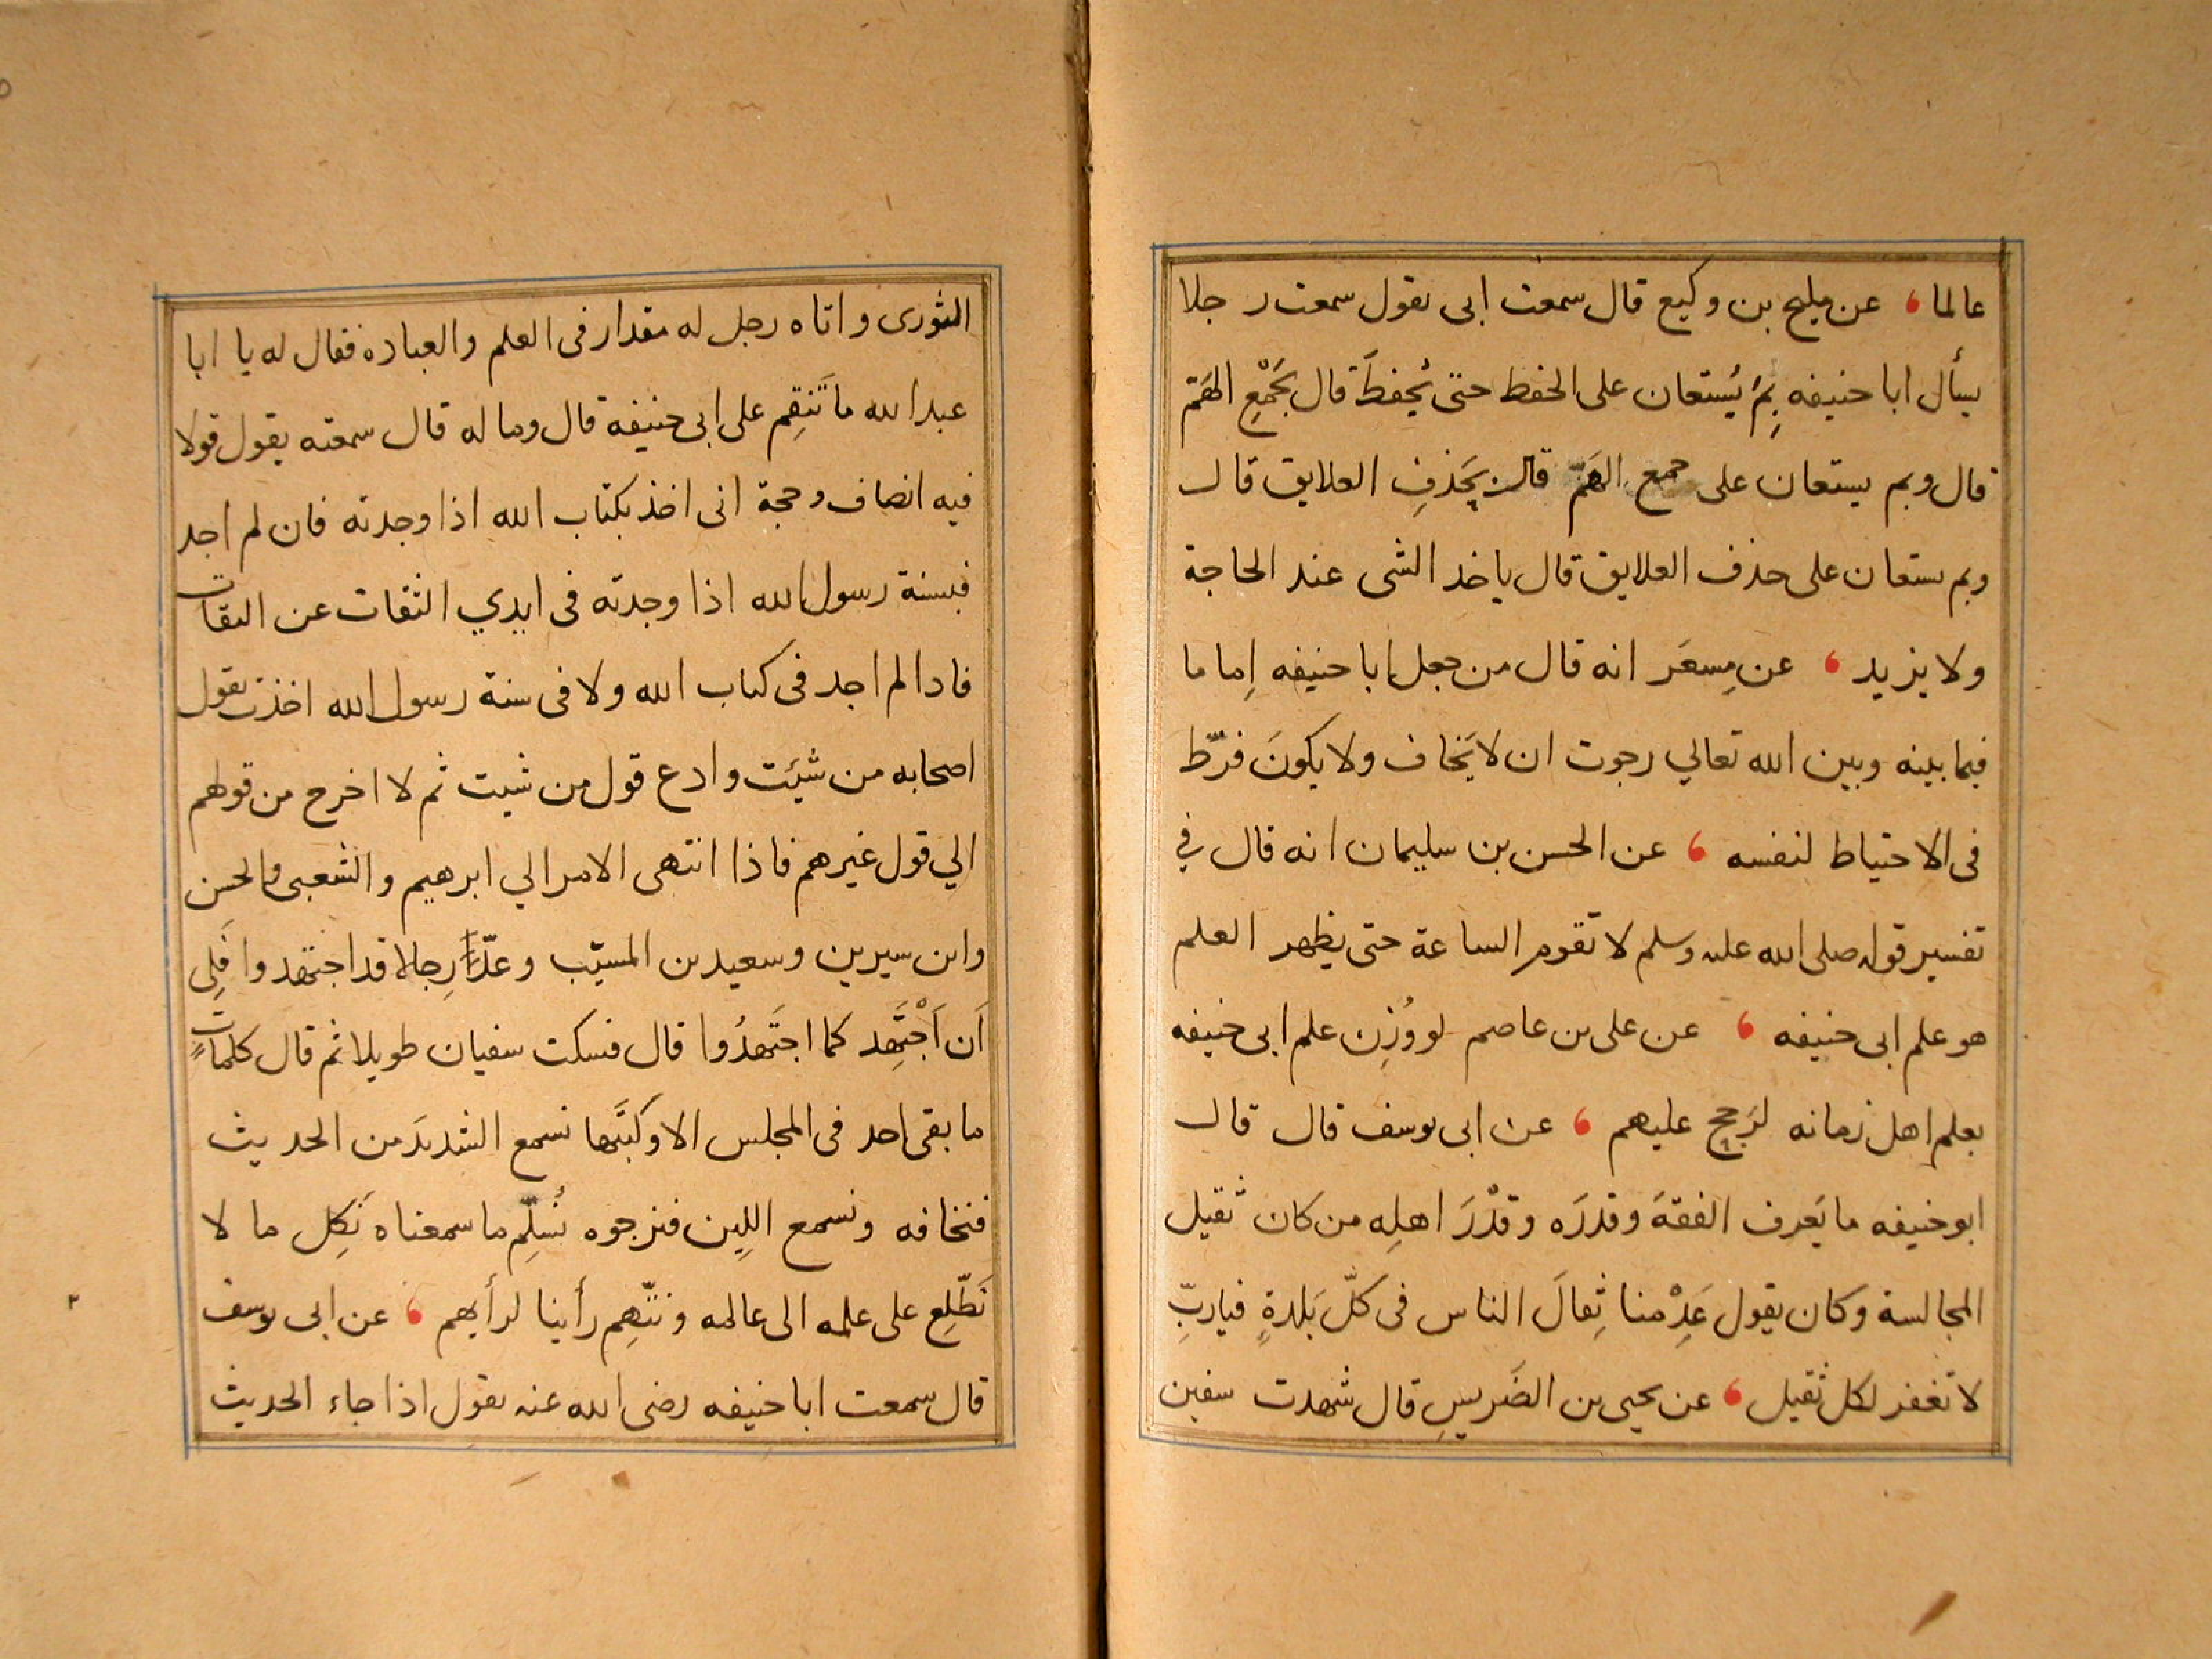 عالما ، عن مليح بن وكيع قال سمعت ابى يقول سمعت رجلا
يسأل ابا حنيفه بِمَ يُستعان على الحفظ حتى يُحفظَ قال بجَمْعِ الهَمّ
قال وبم يستعان على جمع الهَمّ قال بحَذفِ العلايق قال
وبم يستعان على حذف العلايق قال ياخذ الشى عند الحاجة
ولا يزيد ، عن مِسعَر انه قال من جعل ابا حنيفه اِماما
فيما بينه وبين الله تعالي رجوت ان لا يَخاف ولا يكونَ فرّط
فى الاحتياط لنفسه ، عن الحسن بن سليمان انه قال في
تفسير قوله صلى الله عليه وسلم لا تقوم الساعة حتى يظهر العلم
هو علم ابى حنيفه ، عن على بن عاصم لو وُزِن علم ابى حنيفه
بعلم اهل زمانه لرَجح عليهم ، عن ابى يوسف قال قال
ابو حنيفه ما يَعرف الفقهَ وقدرَه وقدْرَ اهلِه من كان ثقيل
المجالسة وكان يقول عَدِمْنا ثِقالَ الناس فى كلّ بَلدةٍ فياربِّ
لا تغفر لكل ثقيل ، عن يحيى بن الضَريسِ قال شهدت سفين
الثورى واتاه رجل له مقدار فى العلم والعباده فقال له يا ابا
عبد الله ما تَنقِم على ابى حنيفة قال وما له قال سمعته يقول قولا
فيه انصاف وحجة انى اخذ بكتاب الله اذا وجدته فان لم اجد
فبسنة رسول الله اذا وجدته فى ايدي الثقات عن الثقات
فاذا لم اجد فى كتاب الله ولا فى سنة رسول الله اخذت بقول
اصحابه من شيئت وادع قول من شيت ثم لا اخرج من قولهم
الي قول غيرهم فاذا انتهى الامر الي ابرهيم والشعبى والحسن
وابن سيرين وسعيد بن المسيّب وعدّد رِجالا قد اجتهدوا فَلِى
اَن اَجْتَهِد كما اجتَهدُوا قال فسكت سفيان طويلا ثم قال كلماتٍ
ما بقى احد فى المجلس الا وكتَبَها نسمع الشديدَ من الحديث
فنخافه ونسمع اللين فنرجوه نُسلِّم ما سمعناه نَكِل ما لا
نَطّلِع على علمه الى عالمه ونتّهِم رأينا لرأيهم ، عن ابى يوسف
قال سمعت ابا حنيفه رضى الله عنه يقول اذا جاء الحديث